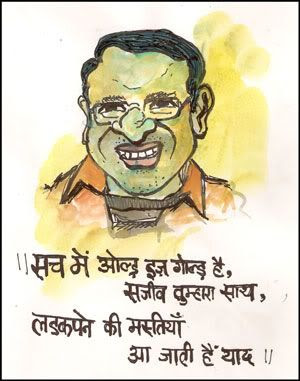 ॥ सच में ओल्ड इज़ गोल्ड है,
सजीव तुम्हारा साथ,
लड़कपने की मस्तियाँ
आ जाती हैं याद ॥